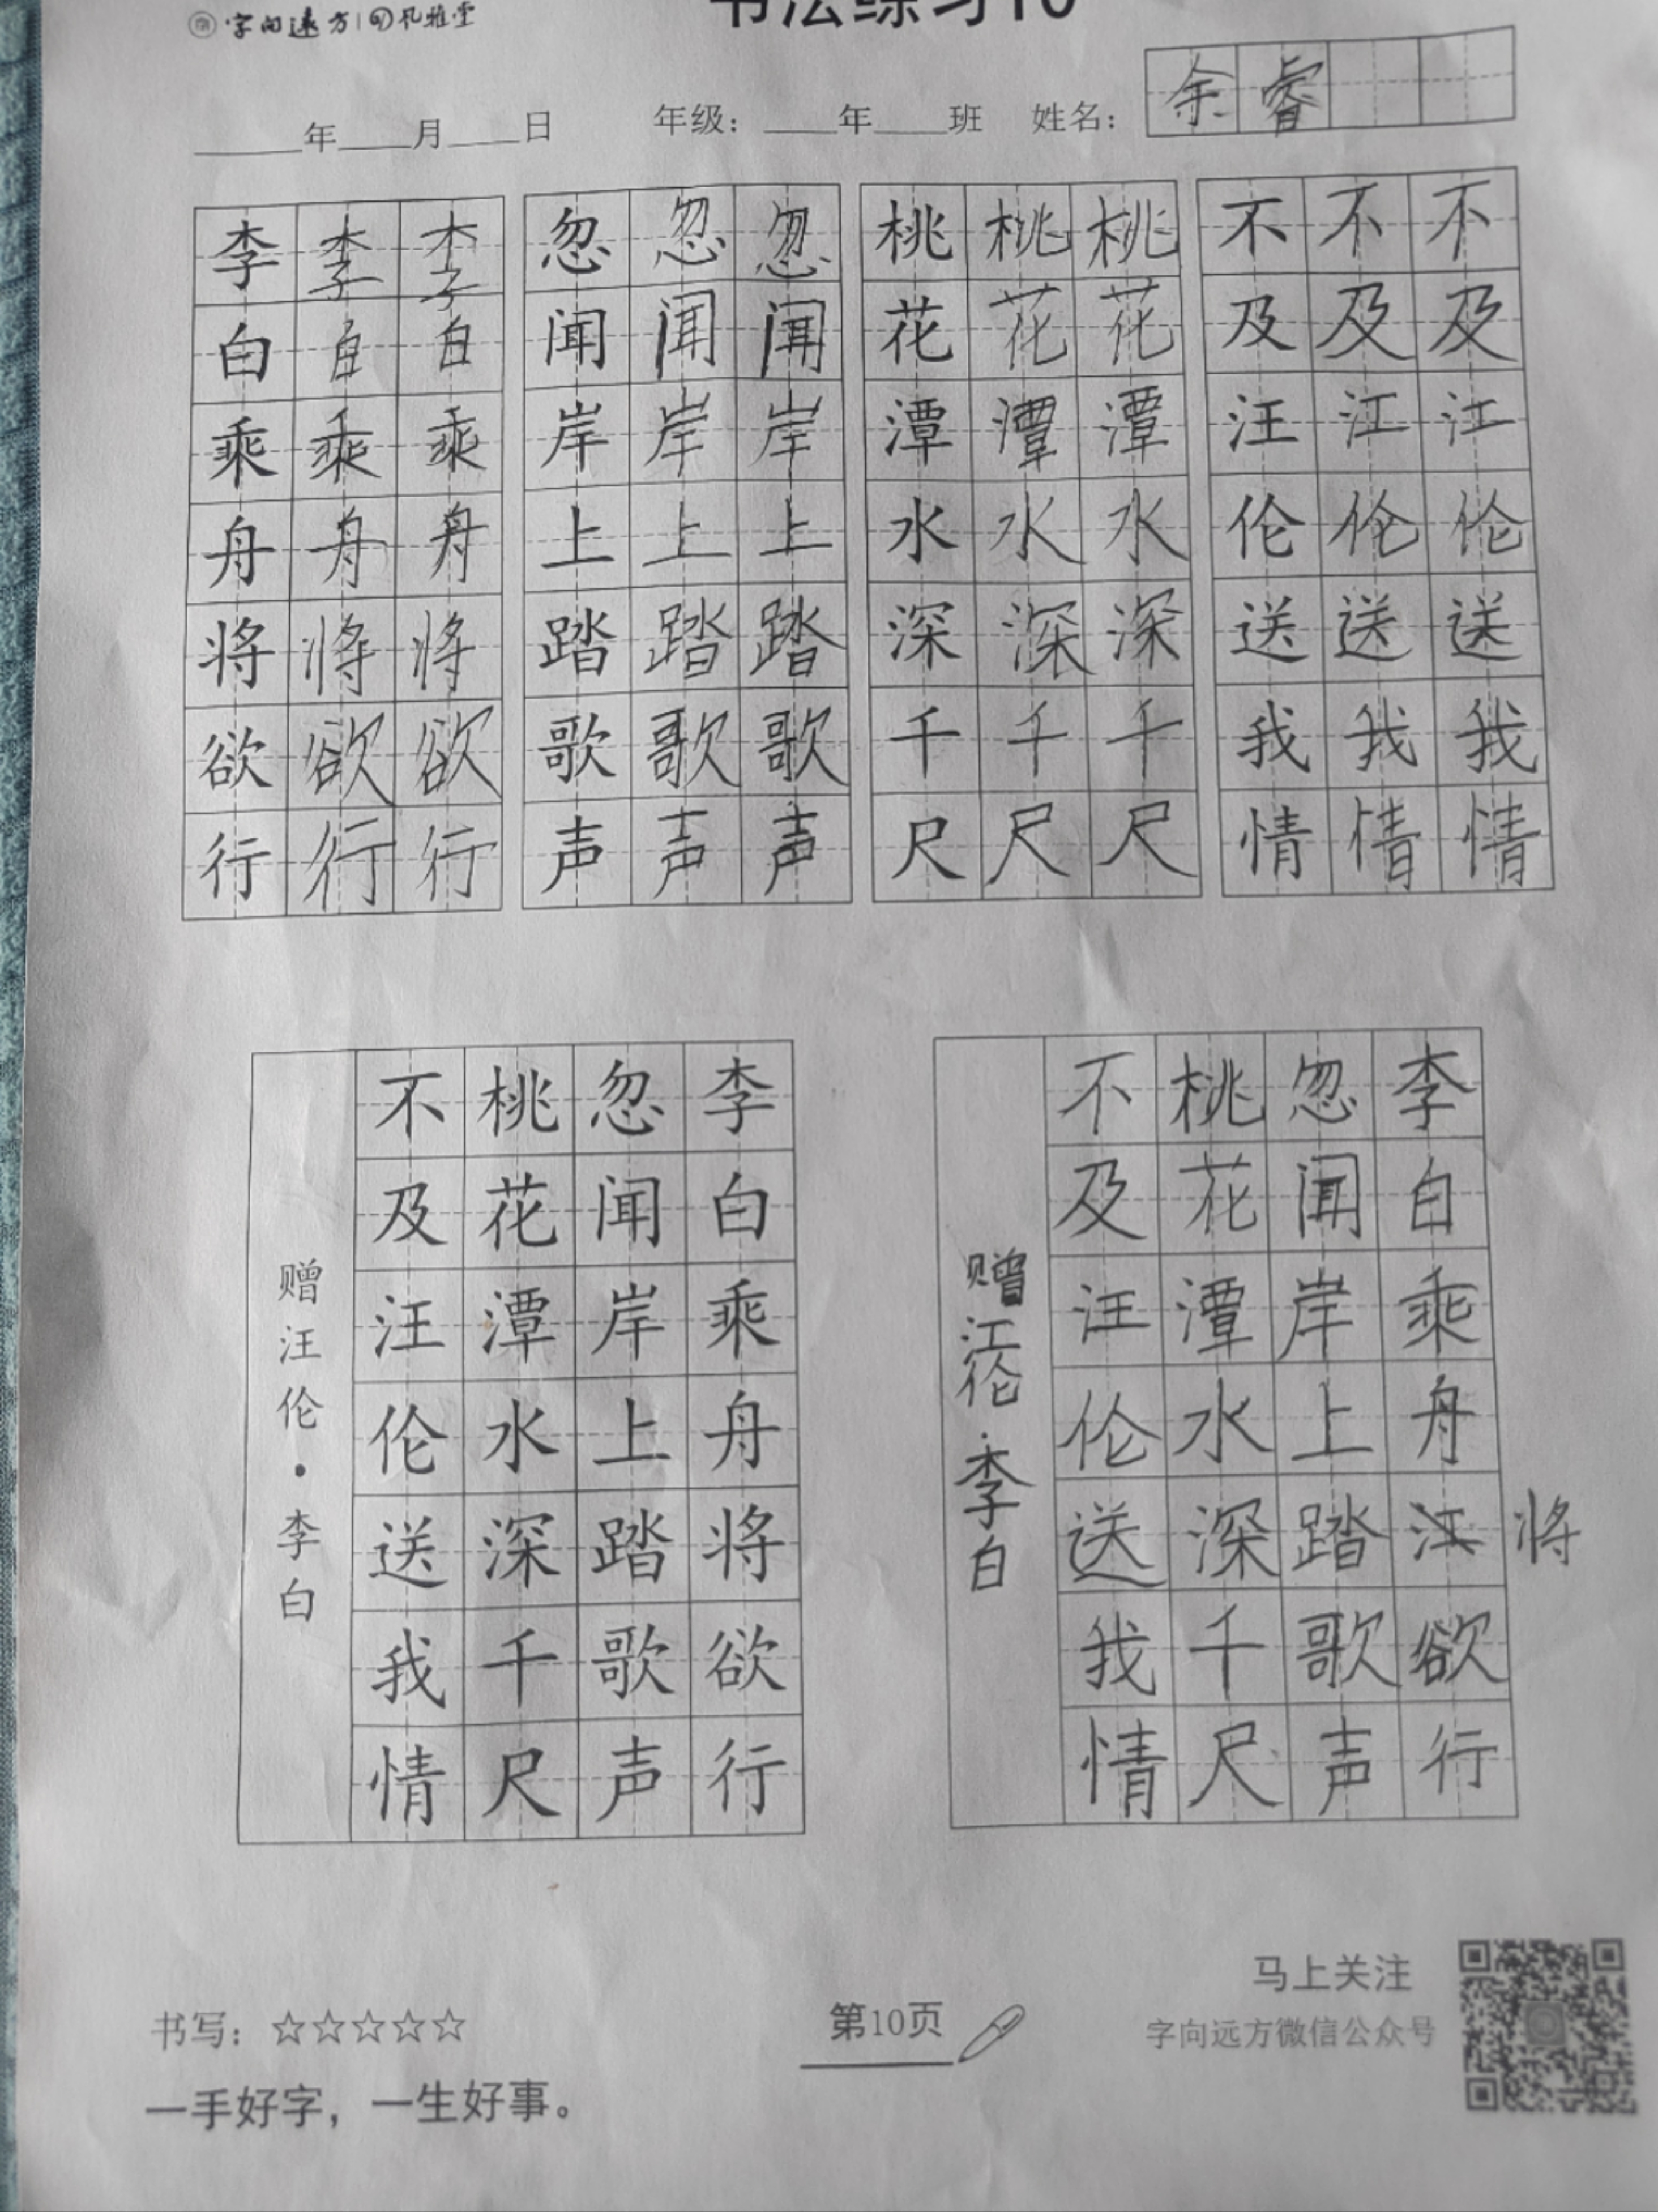 字向远方|风雅堂
书法练习10
____年____月____日 年级：____年____班 姓名：余睿
李李李 忽忽忽 桃桃桃 不不不
白白白 闻闻闻 花花花 及及及
乘乘乘 岸岸岸 潭潭潭 汪江江
舟舟舟 上上上 水水水 伦伦伦
将将将 踏踏踏 深深深 送送送
欲欲欲 歌歌歌 千千千 我我我
行行行 声声声 尺尺尺 情情情
李白乘舟将欲行
忽闻岸上踏歌声
桃花潭水深千尺
不及汪伦送我情
赠汪伦·李白
李白乘舟将欲行
忽闻岸上踏歌声
桃花潭水深千尺
不及汪伦送我情
赠江伦·李白
书写：☆☆☆☆☆
一手好字，一生好事。
第10页
马上关注
字向远方微信公众号